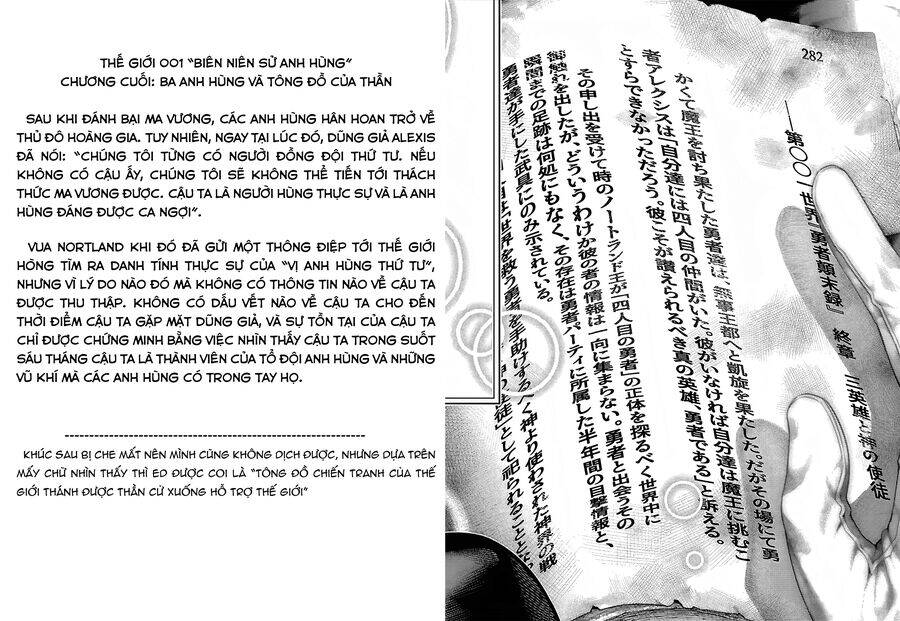 THẾ GIỚI 001 "BIÊN NIÊN SỬ ANH HÙNG"
CHƯƠNG CUỐI: BA ANH HÙNG VÀ TÔNG ĐỒ CỦA THẦN
SAU KHI ĐÁNH BẠI MA VƯƠNG, CÁC ANH HÙNG HÂN HOAN TRỞ VỀ
THỦ ĐÔ HOÀNG GIA. TUY NHIÊN, NGAY TẠI LÚC ĐÓ, DŨNG GIẢ ALEXIS
ĐÃ NÓI: "CHÚNG TÔI TỪNG CÓ NGƯỜI ĐỒNG ĐỘI THỨ TƯ. NẾU
KHÔNG CÓ CẬU ẤY, CHÚNG TÔI SẼ KHÔNG THỂ TIẾN TỚI THÁCH
THỨC MA VƯƠNG ĐƯỢC. CẬU TA LÀ NGƯỜI HÙNG THỰC SỰ VÀ LÀ ANH
HÙNG ĐÁNG ĐƯỢC CA NGỢI".
VUA NORTLAND KHI ĐÓ ĐÃ GỬI MỘT THÔNG ĐIỆP TỚI THẾ GIỚI
HÒNG TÌM RA DANH TÍNH THỰC SỰ CỦA "VỊ ANH HÙNG THỨ TƯ",
NHƯNG VÌ LÝ DO NÀO ĐÓ MÀ KHÔNG CÓ THÔNG TIN NÀO VỀ CẬU TA
ĐƯỢC THU THẬP. KHÔNG CÓ DẤU VẾT NÀO VỀ CẬU TA CHO ĐẾN
THỜI ĐIỂM CẬU TA GẶP MẶT DŨNG GIẢ, VÀ SỰ TỒN TẠI CỦA CẬU TA
CHỈ ĐƯỢC CHỨNG MINH BẰNG VIỆC NHÌN THẤY CẬU TA TRONG SUỐT
SÁU THÁNG CẬU TA LÀ THÀNH VIÊN CỦA TỔ ĐỘI ANH HÙNG VÀ NHỮNG
VŨ KHÍ MÀ CÁC ANH HÙNG CÓ TRONG TAY HỌ.
KHÚC SAU BỊ CHE MẤT NÊN MÌNH CŨNG KHÔNG DỊCH ĐƯỢC, NHƯNG DỰA TRÊN
MẤY CHỮ NHÌN THẤY THÌ ED ĐƯỢC COI LÀ "TÔNG ĐỒ CHIẾN TRANH CỦA THẾ
GIỚI THÁNH ĐƯỢC THẦN CỬ XUỐNG HỖ TRỢ THẾ GIỚI"
282
――第〇〇一世界『勇者顛末録』 終章 三英雄と神の使徒
かくて魔王を討ち果たした勇者達は、無事王都へと凱旋を果たした。だがその場にて勇
者アレクシスは「自分達には四人目の仲間がいた。彼がいなければ自分達は魔王に挑むこ
とすらできなかっただろう。彼こそが讃えられるべき真の英雄、勇者である」と訴える。
その申し出を受けて時のノートランド王が「四人目の勇者」の正体を探るべく世界中に
御触れを出したが、どういうわけか彼の者の情報は一向に集まらない。勇者と出会うその
瞬間までの足跡は何処にもなく、その存在は勇者パーティに所属した半年間の目撃情報と、
勇者達が手にした武具にのみ示されている。
は「世界を救う勇者を手助けするべく神より使わされた神界の戦
徒」として祀られることと